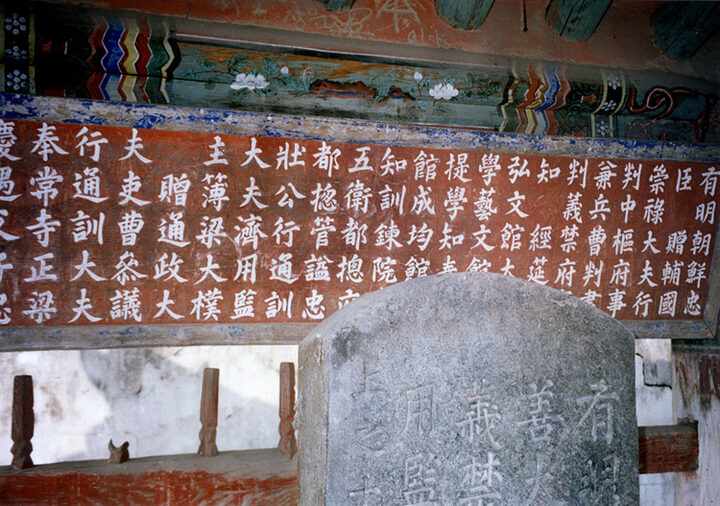 有明朝鮮忠
臣 贈輔國
崇祿大夫行
判中樞府事
兼兵曹判書
判義禁府
知 經筵
弘文館大
學藝文館
提學知春
館成均館
知訓鍊院
五衛都摠
都摠管諡忠
壯公行通訓
大夫濟用監
主簿梁大樸
贈通政大
夫吏曹叅議
行通訓大夫
奉常寺正梁
慶遇父子忠
有明
善大
義禁
用監
上之